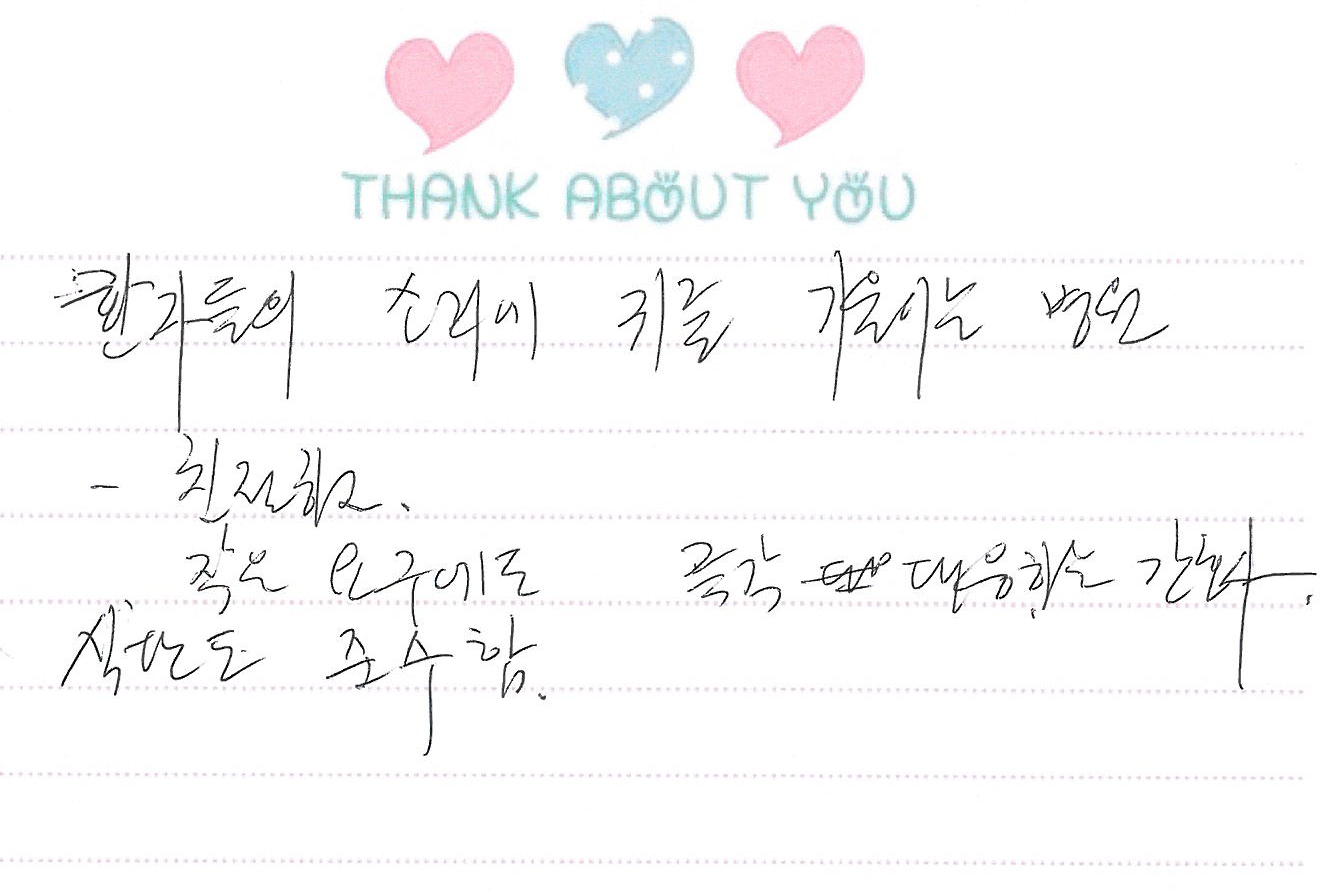 THANK ABOUT YOU
환자들의 소리에 귀를 기울이는 병원
- 친절하고.
작은 요구에도 즉각 대응하는 간호사.
식단도 준수함.